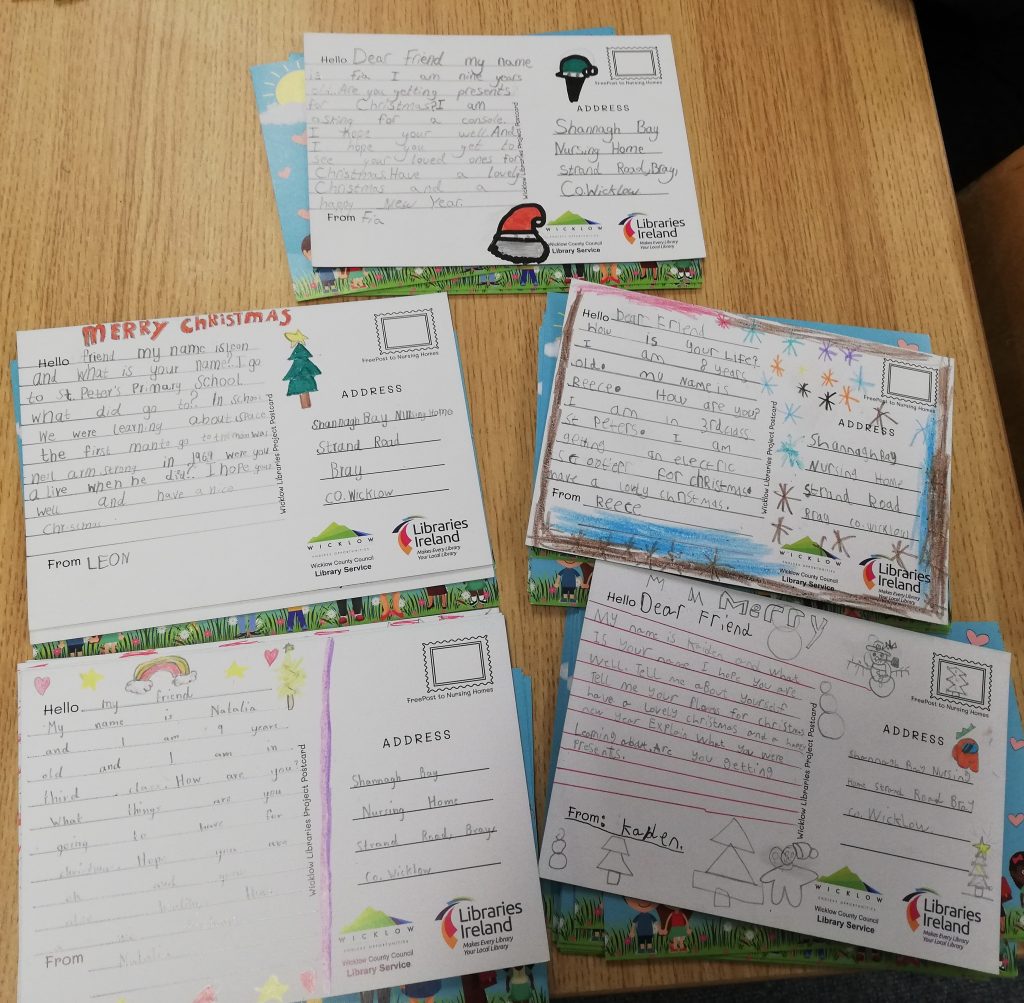 Hello Dear Friend my name
is Fia I am nine years
old. Are you getting presents
for Christmas? I am
asking for a console.
I hope your well. And
I hope you get to
see your loved ones for
Christmas. Have a lovely
Christmas and a
happy New Year.
From Fia
Wicklow Libraries Project Postcard
FreePost to Nursing Homes
ADDRESS
Shannagh Bay
Nursing Home
Strand Road, Bray,
Co. Wicklow
WICKLOW
ENDLESS OPPORTUNITIES
Wicklow County Council
Library Service
Libraries
Ireland
Makes Every Library
Your Local Library
MERRY CHRISTMAS
Hello friend my name is leon
and what is your name? I go
to St. Peter's Primary School
what did go to? In school
We were learning about space
the first man to go to the moon was
neil arm strong in 1969 were you
a live when he did? I hope your
well and have a nice
Christmas
From LEON
Wicklow Libraries Project Postcard
FreePost to Nursing Homes
ADDRESS
Shannagh Bay Nursing Home
Strand Road
Bray
CO. WICKLOW
WICKLOW
ENDLESS OPPORTUNITIES
Wicklow County Council
Library Service
Libraries
Ireland
Makes Every Library
Your Local Library
Hello Dear Friend
How is your life?
I am 8 years
old. my name is
Reece. How are you?
I am in 3rd class
St Peters. I am
geting an electric
scooter for christmas
have a lovely christmas.
From Reece
Wicklow Libraries Project Postcard
FreePost to Nursing Homes
ADDRESS
Shannagh Bay
Nursing Home
Strand Road
Bray co. wicklow
WICKLOW
Wicklow County Council
Library Service
Libraries
Ireland
Makes Every Library
Your Local Library
Hello my friend
My name is Natalia
and I am 9 years
old and I am in
third class. How are you?
What things are you
going to have for
Hope you are
From Natalia
Wicklow Libraries Project Postcard
FreePost to Nursing Homes
ADDRESS
Shannagh Bay
Nursing Home
Strand Road, Bray
Co. Wicklow
WICKLOW
ENDLESS OPPORTUNITIES
Wicklow County Council
Library Service
Libraries
Ireland
Makes Every Library
Your Local Library
M M Merry
Hello Dear Friend
My name is Kaiden and what
Is your name I hope you are
Well. Tell me about yourself
Tell me your Plans for christmas
have a lovely christmas and a happy
new year Explain what you were
Learning about. Are you getting
Presents.
From: Kaiden.
Wicklow Libraries Project Postcard
FreePost to Nursing Homes
ADDRESS
Shannagh Bay Nursing
Home Strand Road Bray
Co. Wicklow
WICKLOW
ENDLESS OPPORTUNITIES
Wicklow County Council
Library Service
Libraries
Ireland
Makes Every Library
Your Local Library